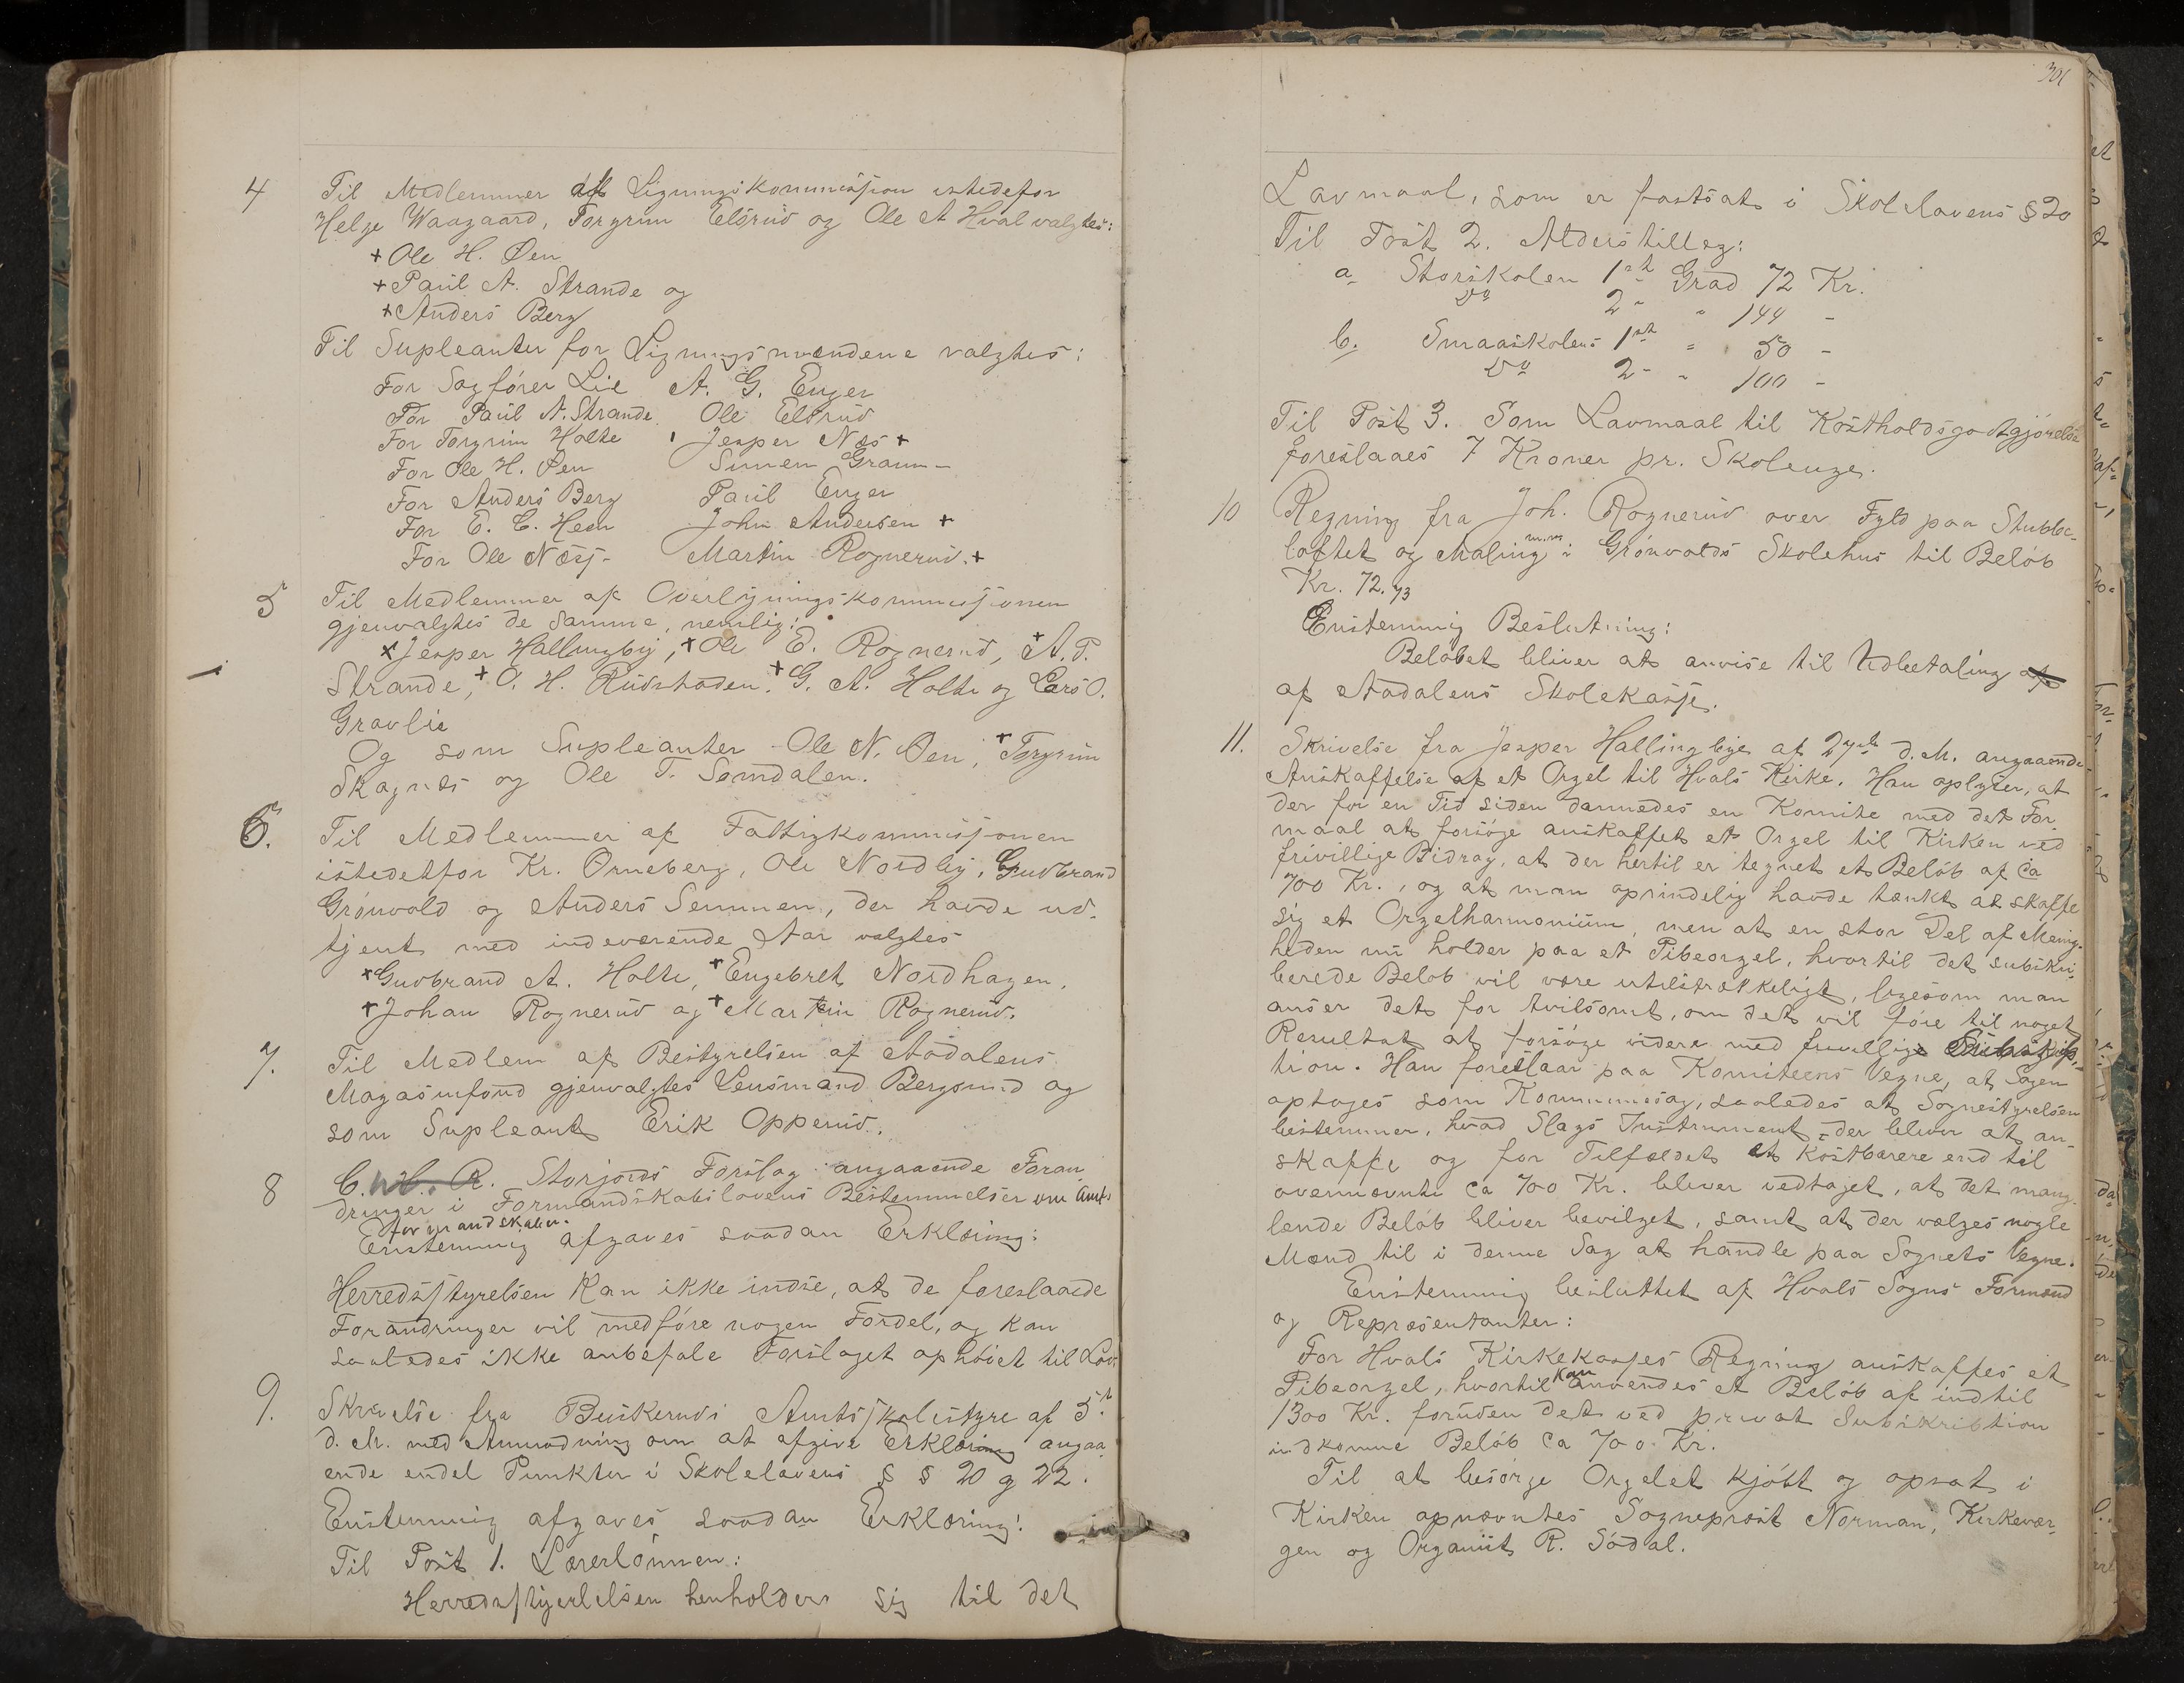 4 Til Medlemmer af Ligningskommissjon istedefor
Helge Waagaard, Torgrim Elsrud og Ole A Hval valgtes:
+ Ole H. Øen
+ Paul A. Strande og
+ Anders Berg
Til Supleanter for Ligningsmændene valgtes:
For Sagfører Lie A. G. Enger
For Paul A. Strande Ole Elsrud
For Torgrim Holte Jesper Næs +
For Ole H. Øen Simen Gram -
For Anders Berg Paul Enger
For E. C. Heen John Andersen +
For Ole Næsj- Martin Rognerud. +
5 Til Medlemmer af Overligningskommissjonen
gjenvalgtes de samme, nemlig:
+ Jesper Hallingby, + Ole E. Rognerud, + A. P.
Strande, + O. H. Rudshaden. + G. A. Holte og Lars O.
Gravlie
Og som Supleanter - Ole N. Øen, + Torgrim
Skagnæs og Ole T. Sømdalen.
6. Til Medlemmer af Fattigkommissjonen
istedetfor Kr. Ørneberg, Ole Nordby, Gudbrand
Grønvold og Anders Semmen, der havde ud-
tjent med indeværende Aar valgtes
+ Gudbrand A. Holte, + Engebret Nordhagen,
+ Johan Rognerud og + Martin Rognerud.
7. Til Medlem af Bestyrelsen af Aadalens
Magasinfond gjenvalgtes Lensmand Bergsund og
som Supleant Erik Opperud.
8 C. Storjords Forslag angaaende Foran-
dringer i Formandskabslovens Bestemmelser om Amts-
formandskaber.
Enstemmig afgaves saadan Erklæring:
Herredsstyrelsen kan ikke indse, at de foreslaaede
Forandringer vil medføre nogen Fordel, og kan
saaledes ikke anbefale Forslaget ophøiet til Lov.
9. Skrivelse fra Buskeruds Amtsskolestyre af 5t
d. M. med Anmodning om at afgive Erklæring angaa
ende endel Punkter i Skolelovens § § 20 og 22.
Enstemmig afgaves saadan Erklæring:
Til Post 1. Lærerlønnen:
Herredsstyrelelsen henholder sig til det
301
Lavmaal, som er fastsat i Skolelovens § 20
Til Post 2. Alderstillæg:
a. Storskolen 1st Grad 72 Kr.
Do 2 - " 144 -
b. Smaaskolens 1st " 50 -
Do 2 - " 100 -
Til Post 3. Som Lavmaal til Kostholdsgodtgjørelse
foreslaaes 7 Kroner pr. Skoleuge.
10 Regning fra Joh. Rognerud over Fyld paa Stubbe-
loftet og Maling m.m. i Grønvolds Skolehus til Beløb
Kr. 72.43
Enstemmig Beslutning:
Beløbet bliver at anvise til Udbetaling af
af Aadalens Skolekasse.
11. Skrivelse fra Jesper Hallingbye af 27de d. M. angaaende
Anskaffelse af et Orgel til Hvals Kirke. Han oplyser, at
der for en Tid siden dannedes en Komite med det For-
maal at forsøge anskaffet et Orgel til Kirken ved
frivillige Bidrag, at der hertil er tegnet et Beløb af ca
700 Kr., og at man oprindelig havde tænkt at skaffe
sig et Orgelharmonium, men at en stor Del af Menig-
heden nu holder paa et Pibeorgel, hvortil det subskri-
berede Beløb vil være utilstrækkeligt, ligesom man
anser det for tvilsomt, om det vil føre til noget
Resultat at forsøge videre med frivillige Subskrip-
tion. Han foreslaar paa Komiteens Vegne, at Sagen
optages som Kommunesag, saaledes at Sognestyrelsen
bestemmer, hvad Slags Instrument, der bliver at an-
skaffe og for Tilfældet et kostbarere end til
ovennævnte ca 700 Kr. bliver vedtaget, at det mang-
lende Beløb bliver bevilget, samt at der vælges nogle
Mænd til i denne Sag at handle paa Sognets Vegne.
Enstemmig besluttet af Hvals Sogns Formænd
og Repræsentanter:
For Hvals Kirkekasses Regning anskaffes et
Pibeorgel, hvortil kan anvendes et Beløb af indtil
1300 Kr. foruden det ved privat Subskribtion
indkomne Beløb ca 700 Kr.
Til at besørge Orgelet kjøbt og opsat i
Kirken opnævntes Sogneprest Norman, Kirkevær-
gen og Organist R. Sødal.